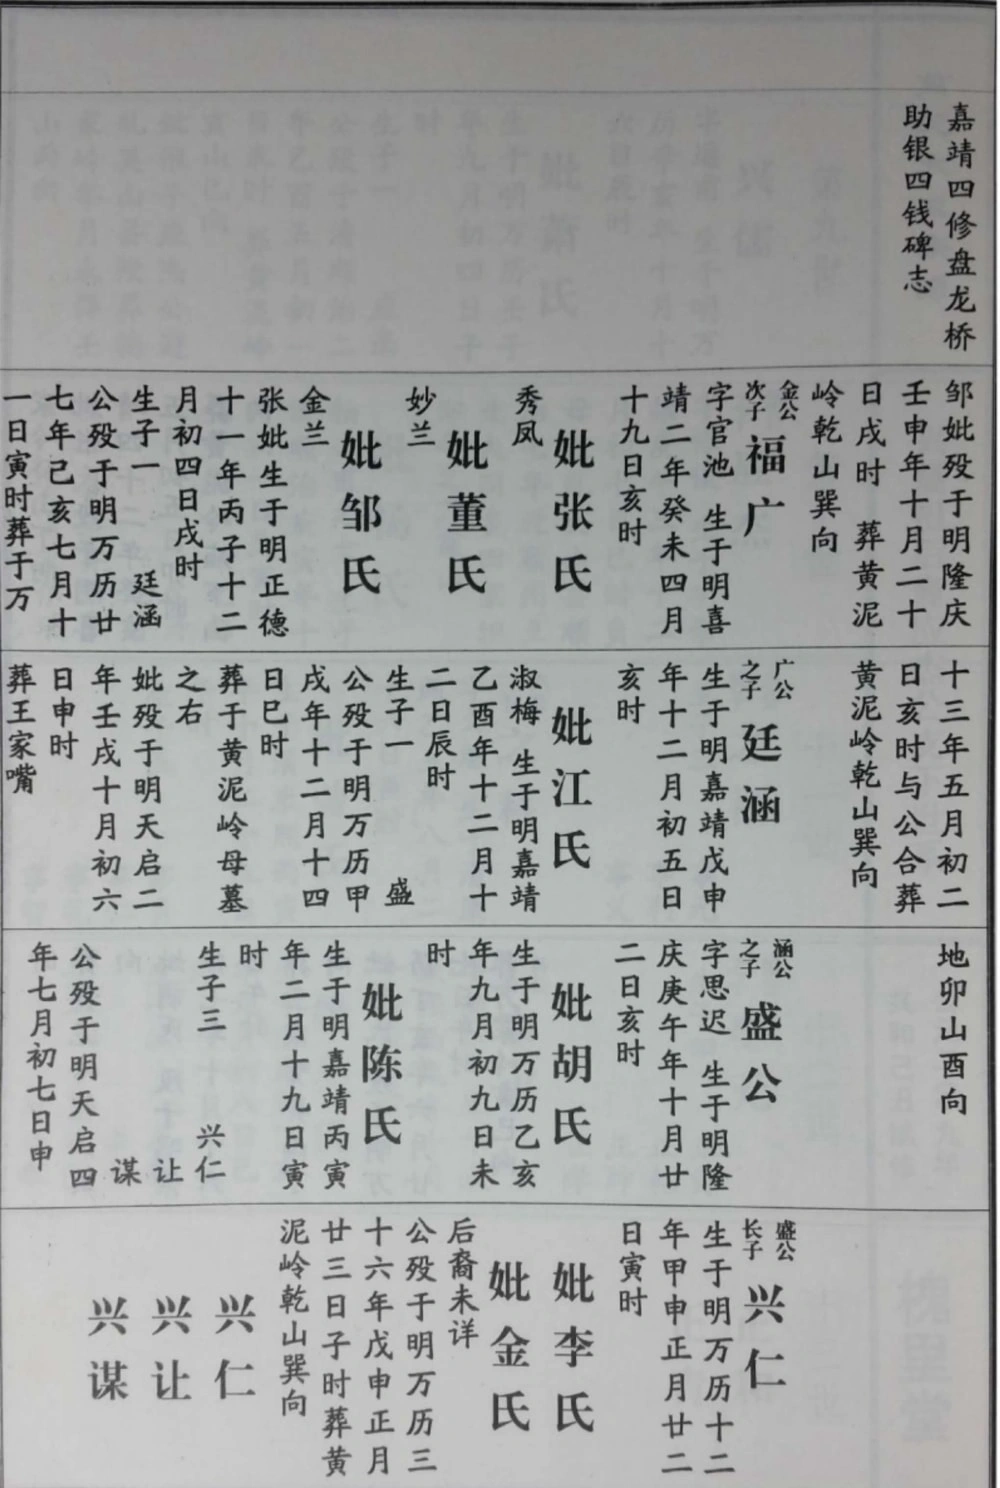 嘉靖四修盘龙桥
助银四钱碑志
邹妣殁于明隆庆
壬申年十月二十
日戌时 葬黄泥
岭乾山巽向
金公
次子
福广
字官池 生于明喜
靖二年癸未四月
十九日亥时
妣张氏
秀凤
妣董氏
妙兰
妣邹氏
金兰
张妣生于明正德
十一年丙子十二
月初四日戌时
生子一 廷涵
公殁于明万历廿
七年己亥七月十
一日寅时葬于万
十三年五月初二
日亥时与公合葬
黄泥岭乾山巽向
广公
之子
廷涵
生于明嘉靖戊申
年十二月初五日
亥时
妣江氏
淑梅 生于明嘉靖
乙酉年十二月十
二日辰时
生子一 盛
公殁于明万历甲
戌年十二月十四
日巳时
葬于黄泥岭母墓
之右
妣殁于明天启二
年壬戌十月初六
日申时
葬王家嘴
地卯山酉向
涵公
之子
盛公
字思迟 生于明隆
庆庚午年十月廿
二日亥时
妣胡氏
生于明万历乙亥
年九月初九日未
时
妣陈氏
生于明嘉靖丙寅
年二月十九日寅
时
生子三 兴仁
让
谋
公殁于明天启四
年七月初七日申
盛公
长子
兴仁
生于明万历十二
年甲申正月廿二
日寅时
妣李氏
妣金氏
后裔未详
公殁于明万历三
十六年戊申正月
廿三日子时葬黄
泥岭乾山巽向
兴仁
兴让
兴谋